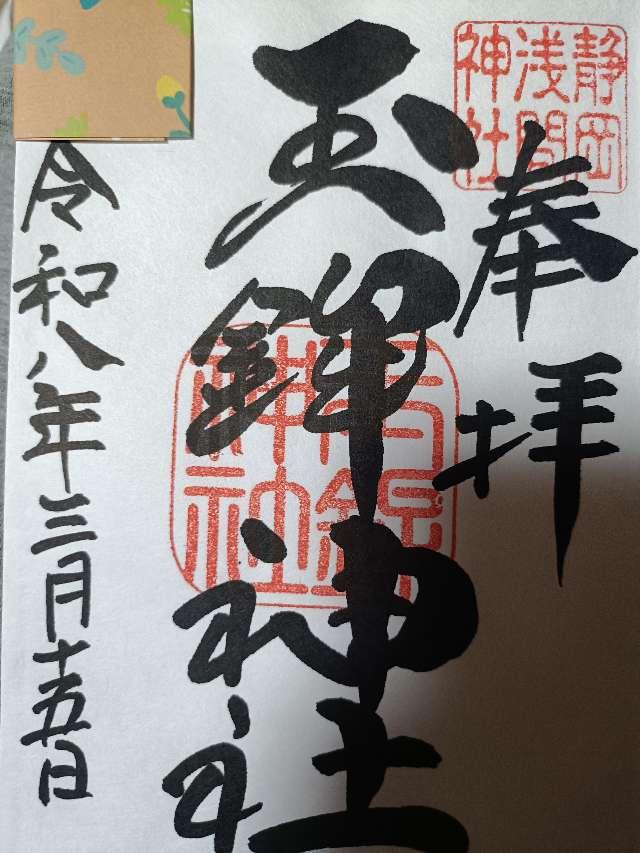 奉拝
静岡
浅間
神社
玉鉾神社
玉鉾
神社
令和八年三月十五日